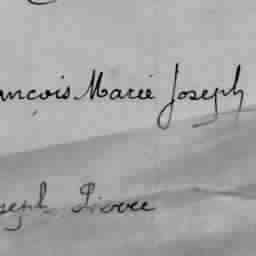 ançois Marie Joseph
seph Pierre